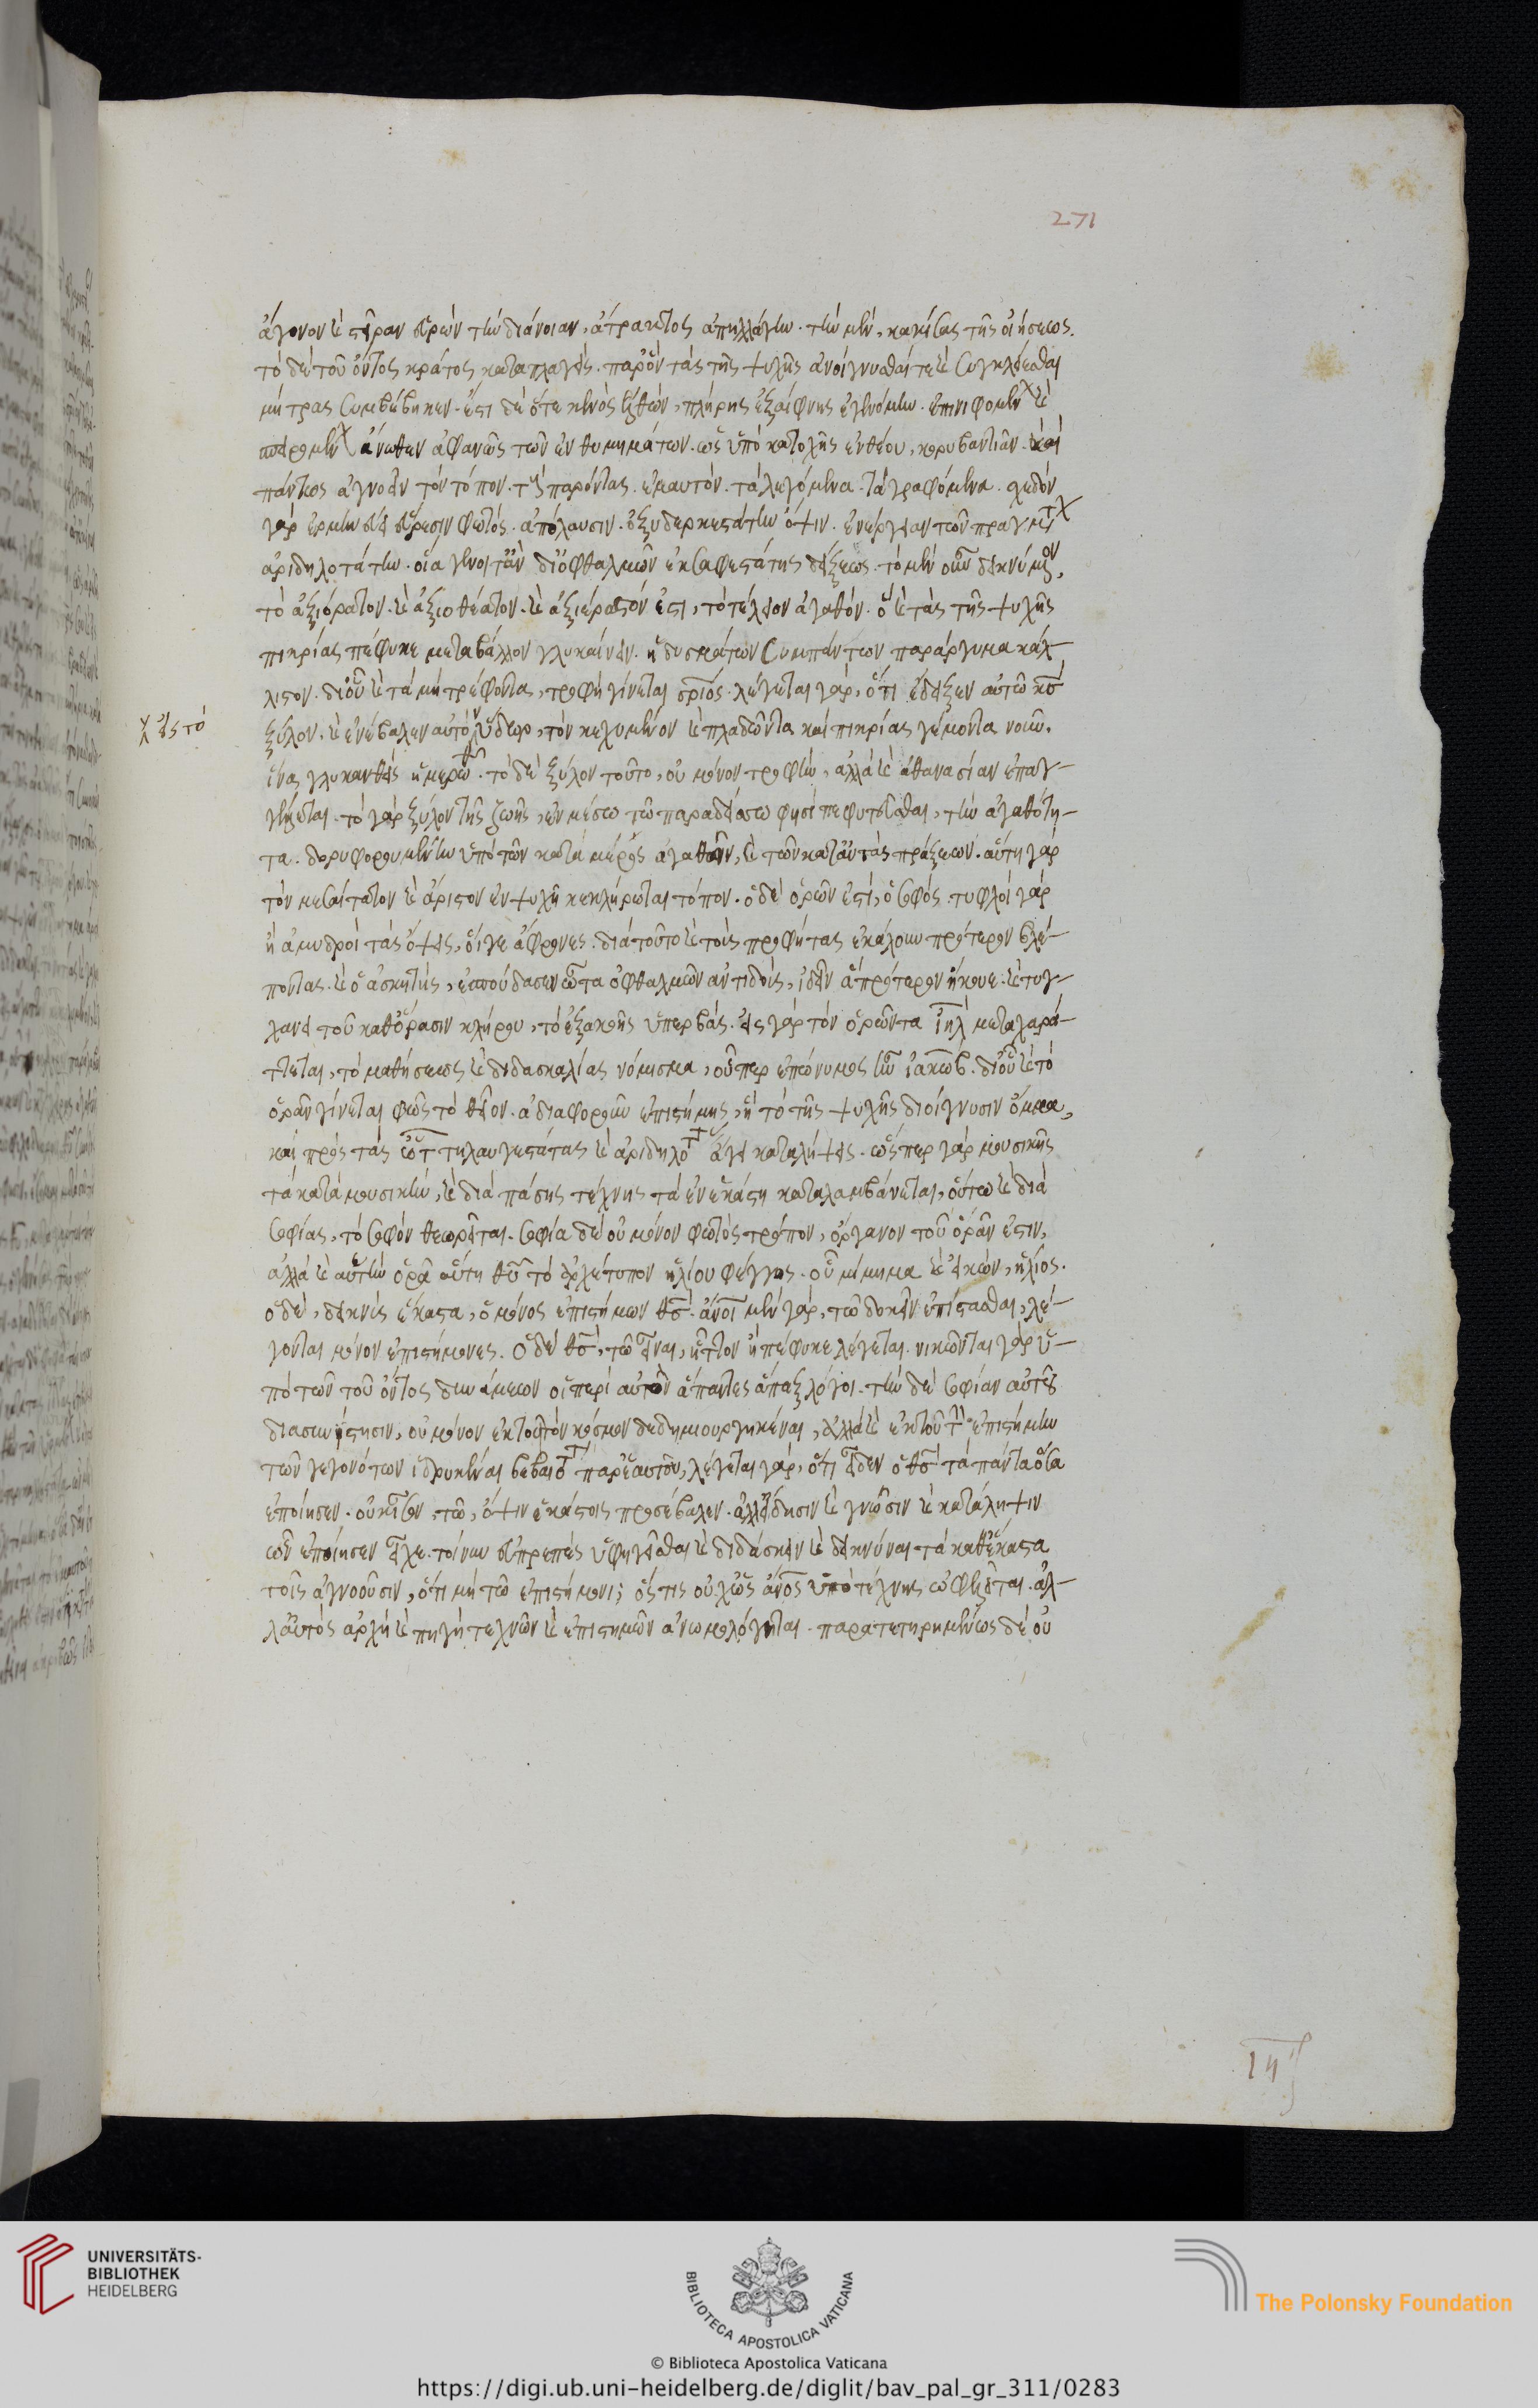 ἄγονον καὶ στεῖραν εὑρὼν τὴν διάνοιαν, ἄπρακτος ἀπηλλάγην. τὴν μὲν, κακίσας τῆς οἰήσεως.
τὸ δὲ τοῦ ὄντος κράτος καταπλαγείς. παρ' ὃν τὰς τῆς ψυχῆς ἀνοίγνυσθαί τε καὶ συγκλείεσθαι
μήτρας συμβέβηκεν. ἔστι δὲ ὅτε κενὸς ἐλθών, πλήρης ἐξαίφνης ἐγενόμην. ἐπινιφομένων καὶ
σπειρομένων ἄνωθεν ἀφανῶς τῶν ἐνθυμημάτων. ὡς ὑπὸ κατοχῆς ἐνθέου, κορυβαντιᾶν. καὶ
πάντως ἀγνοεῖν τὸν τόπον. τοὺς παρόντας. ἐμαυτόν. τὰ λεγόμενα. τὰ γραφόμενα. σχεδὸν
γὰρ ἑρμην εὖ εὕρεσιν φωτός. ἀπόλαυσιν. ὀξυδερκεστάτην ὄψιν. ἐνέργειαν τῶν πραγμάτων
ἀριδηλοτάτην. οἷα γένοιτ' ἂν δι' ὀφθαλμῶν ἐκ σαφεστάτης δείξεως. τὸ μὲν οὖν δεικνύμενον,
τὸ ἀξιόρατον. καὶ ἀξιοθέατον. καὶ ἀξιέραστόν ἐστι, τὸ τέλειον ἀγαθόν. ὃ καὶ τὰς τῆς ψυχῆς
πικρίας πέφυκε μεταβάλλον γλυκαίνειν. ἡδυσμάτων συμπάντων παράρτυμα κάλ-
λιστον. δι' οὗ καὶ τὰ μὴ τρέφοντα, τροφὴ γίνεται σωτήριος. λέγεται γάρ, ὅτι ἔδειξεν αὐτῷ κς
ξύλον. καὶ ἐνέβαλεν αὐτὸ ὕδωρ, τὸν κεχυμένον καὶ πλαδῶντα καὶ πικρίας γέμοντα νοῦν.
εἰς τὸ
ἵνα γλυκανθεὶς ἡμερωθῇ. τὸ δὲ ξύλον τοῦτο, οὐ μόνον τροφὴν, ἀλλὰ καὶ ἀθανασίαν ἐπαγ-
γέλλεται. τὸ γὰρ ξύλον τῆς ζωῆς, ἐν μέσῳ τῷ παραδείσῳ φησὶ πεφυτεῦσθαι, τὴν ἀγαθότη-
τα. δορυφορουμένην ὑπὸ τῶν κατὰ μέρος ἀγαθῶν, καὶ τῶν κατ' αὐτὰς πράξεων. αὕτη γὰρ
τὸν μεσαίτατον καὶ ἄριστον ἐν ψυχῇ κεκλήρωται τόπον. ὁ δὲ ὁρῶν ἐστί, ὁ σοφός. τυφλοὶ γὰρ
ἢ ἀμυδροὶ τὰς ὄψεις, οἵ γε ἄφρονες. διὰ τοῦτο καὶ τοὺς προφήτας ἐκάλουν πρότερον βλέ-
ποντας. καὶ ὁ ἀσκητής, ἐσπούδασεν ὦτα ὀφθαλμῶν ἀντιδούς, ἰδεῖν ἃ πρότερον ἤκουε. καὶ τυγ-
χάνει τοῦ καθ' ὅρασιν κλήρου, τὸ ἐξ ἀκοῆς ὑπερβάς. εἰς γὰρ τὸν ὁρῶντα ιηλ μεταχαρά-
ττεται, τὸ μαθήσεως καὶ διδασκαλίας νόμισμα, οὗπερ ἐπώνυμος ἦν ἰακώβ. δι' οὗ καὶ τὸ
ὁρᾶν γίνεται φῶς τὸ θεῖον. ἀδιαφοροῦν ἐπιστήμης, ἣ τὸ τῆς ψυχῆς διοίγνυσιν ὄμμα,
καὶ πρὸς τὰς ὤτων τηλαυγεστάτας καὶ ἀριδηλοτέρας ἄγει καταλήψεις. ὥσπερ γὰρ μουσικῆς
τὰ κατὰ μουσικὴν, καὶ διὰ πάσης τέχνης τὰ ἐν ἑκάστῃ καταλαμβάνεται, οὕτω καὶ διὰ
σοφίας, τὸ σοφὸν θεωρεῖται. σοφία δὲ οὐ μόνον φωτὸς τρόπον, ὄργανον τοῦ ὁρᾶν ἐστιν,
ἀλλὰ καὶ αὑτὴν ὁρᾷ αὕτη θυ τὸ ἀρχέτυπον ἡλίου φέγγος. οὗ μίμημα καὶ εἰκών, ἥλιος.
ὁ δὲ, δεικνὺς ἕκαστα, ὁ μόνος ἐπιστήμων θς. ἄνοι μὲν γὰρ, τῷ δοκεῖν ἐπίστασθαι, λέ-
γονται μόνον ἐπιστήμονες. ὁ δὲ θς, τῷ εἶναι, ἧττον ἢ πέφυκε λέγεται. νικῶνται γὰρ ὑ-
πὸ τῶν τοῦ ὄντος δυνάμεων οἱ περὶ αὐτὸν ἅπαντες ἅπαξ λόγοι. τὴν δὲ σοφίαν αὐτοῦ
διασυνίστησιν, οὐ μόνον ἐκ τοῦ τὸν κόσμον δεδημιουργηκέναι, ἀλλὰ καὶ ἐκ τοῦ τὴν ἐπιστήμην
τῶν γεγονότων ἱδρυκέναι βεβαιότατα παρ' ἑαυτῷ, λέγεται γάρ, ὅτι εἶδεν ὁ θς τὰ πάντα ὅσα
ἐποίησεν. οὐκ ἴσον, τῷ, ὄψιν ἑκάστοις προσέβαλεν. ἀλλ' εἴδησιν καὶ γνῶσιν καὶ κατάληψιν
ὧν ἐποίησεν εἶχε. τοίνυν εὐπρεπὲς ὑφηγεῖσθαι καὶ διδάσκειν καὶ δεικνύναι τὰ καθ' ἕκαστα
τοῖς ἀγνοοῦσιν, ὅτι μὴ τῷ ἐπιστήμονι; ὅστις οὐχ ὡς ἄνος ὑπὸ τέχνης ὠφελεῖται. ἀλ-
λ' αὐτὸς ἀρχὴ καὶ πηγὴ τεχνῶν καὶ ἐπιστημῶν ἀνωμολόγηται. παρατετηρημένως δὲ οὐ
271
UNIVERSITÄTS-
BIBLIOTHEK
HEIDELBERG
BIBLIOTECA APOSTOLICA VATICANA
The Polonsky Foundation
© Biblioteca Apostolica Vaticana
https://digi.ub.uni-heidelberg.de/diglit/bav_pal_gr_311/0283